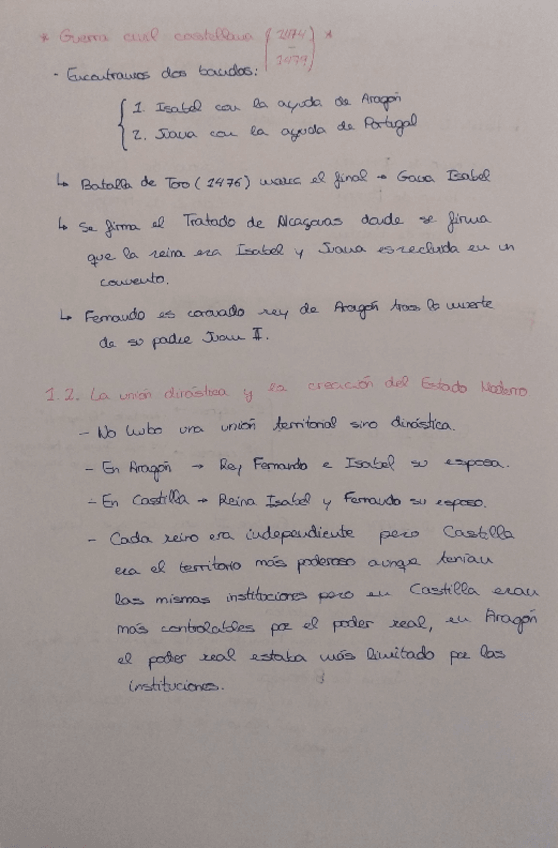 * Guerra civil castellana (1474 - 1479) *
- Encontramos dos bandos:
1. Isabel con la ayuda de Aragón
2. Juana con la ayuda de Portugal
↳ Batalla de Toro (1476) marc el final → Gana Isabel
↳ Se firma el Tratado de Alcaçovas donde se firma
que la reina era Isabel y Juana es recluida en un
convento.
↳ Fernando es coronado rey de Aragón tras la muerte
de su padre Juan II.
1.2. La unión dinástica y la creación del Estado Moderno
- No hubo una unión territorial sino dinástica.
- En Aragón → Rey Fernando e Isabel su esposa.
- En Castilla → Reina Isabel y Fernando su esposo.
- Cada reino era independiente pero Castilla
era el territorio más poderoso aunqe tenían
las mismas instituciones pero en Castilla eran
más controlables por el poder real, en Aragón
el poder real estaba más limitado por las
instituciones.